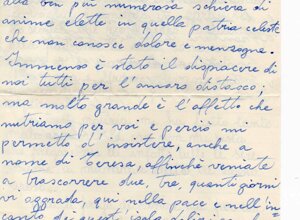 alla ben più numerosa schiera di
anime elette in quella patria celeste
che non conosce dolore e menzogna.
Immenso è stato il dispiacere di
noi tutti per l'amaro distacco;
ma molto grande è l'affetto che
nutriamo per voi e perciò mi
permetto d'insistere, anche a
nome di Teresa, affinchè veniate
a trascorrere due, tre, quanti giorni
vi aggrada, qui nella pace e nell'in=
canto di quest'isola